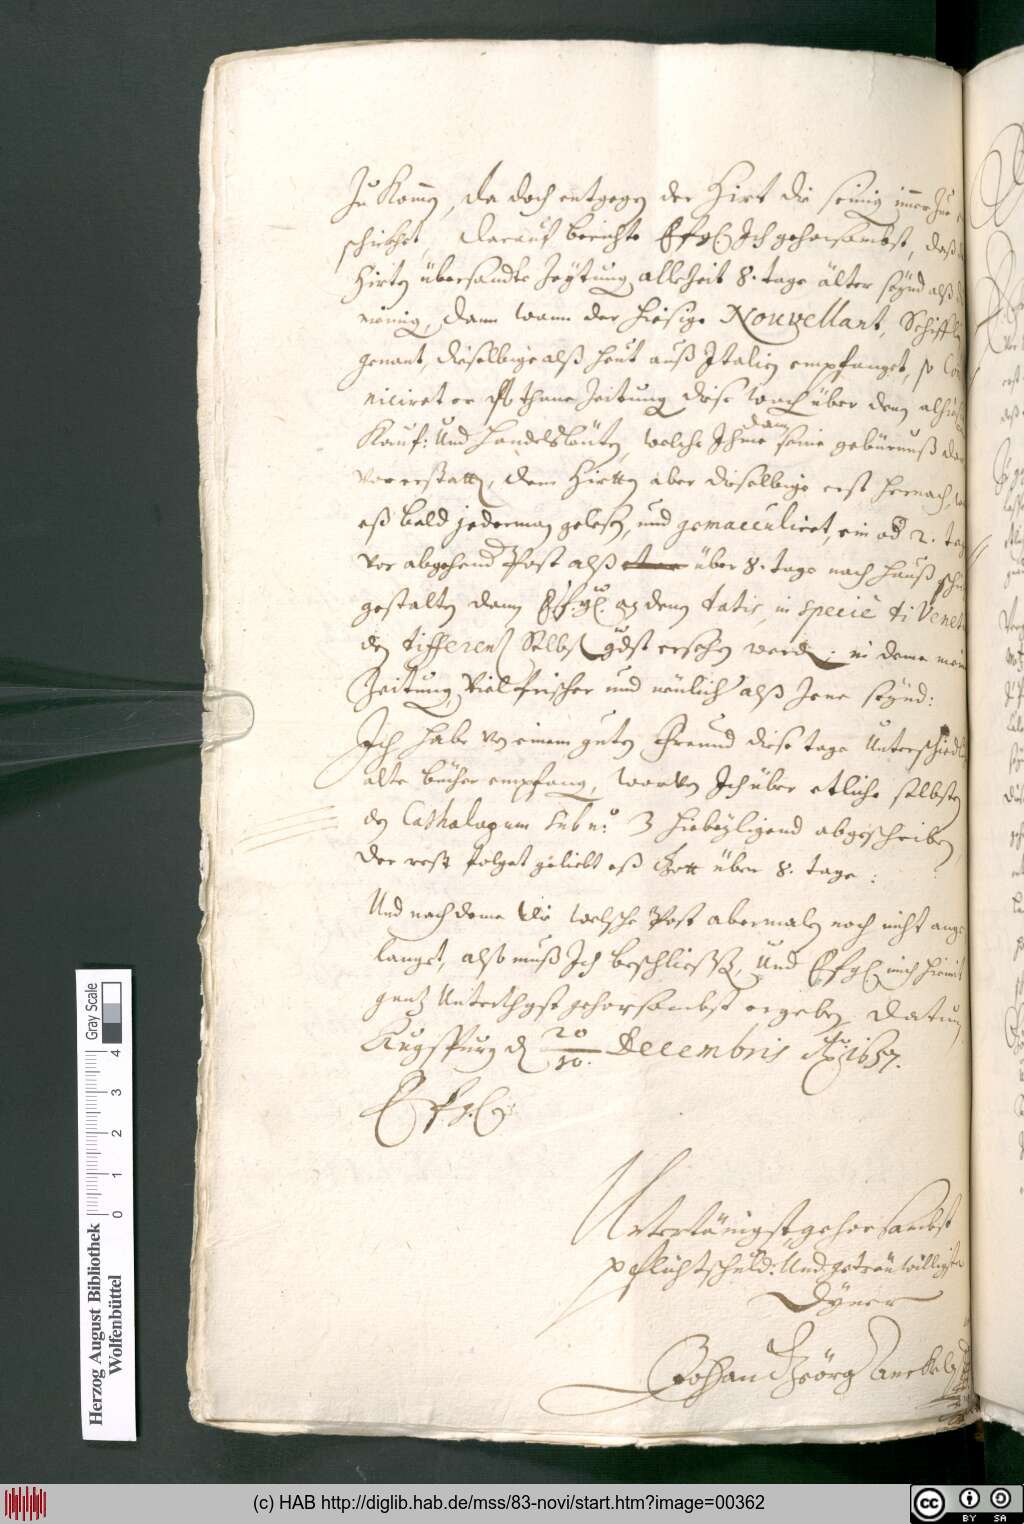 zu kommen, da doch entgegen der Hirt die seinig immer zue
schickhet, darauf berichte EfgD Ich gehorsambst, daß
Hirten übersandte Zeÿtung allezeit 8. tage älter seÿnd alß
meinig, dann wann der hiesige Nouvellant, Schiffl
genant, dieselbige alß heut auß Italien empfanget, so Co
niciret er sothane Zeitung diese woch über den
Kauf: Und handelsleüten, welche Ihme dann seine gebürnuß
vor erstatten, dem Hirtten aber dieselbige erst hernach,
eß bald jederman gelesen, und gemacculiret, ein od 2. tag
vor abgehend Post alß über 8. tage nach hauß
gestalten dann Efgl. auß denen datis, in specie di Venet
den differens Selbst gdst ersehen werden, in deme mein
Zeitung Viel frischer und neulich alß Jene seÿnd:
Ich habe von einem guten Freund diese tage Unterschiedl
alte bücher empfang, worvon Ich über etliche selbsten
den Cathalogum sub no: 3 hiebeÿligend abgeschriben,
der rest folget geliebt eß Gott über 8. tage:
Und nach deme die welsche Post abermalen noch nicht ange
langet, alß muß Ich beschliessen, Und EfgD mich hiemit
gantz Unterthgst gehorsambst ergeben, Datum
Augspurg d 20/10. Decembris Ao 1657.
EfgD
Untertänigst, gehorsambst
pflichtschuld: Und getreüwilligster
Dÿner
Johan Geörg Anckel
Herzog August Bibliothek
Wolfenbüttel
0 1 2 3 4
Gray Scale
(c) HAB http://diglib.hab.de/mss/83-novi/start.htm?image=00362
cc BY SA